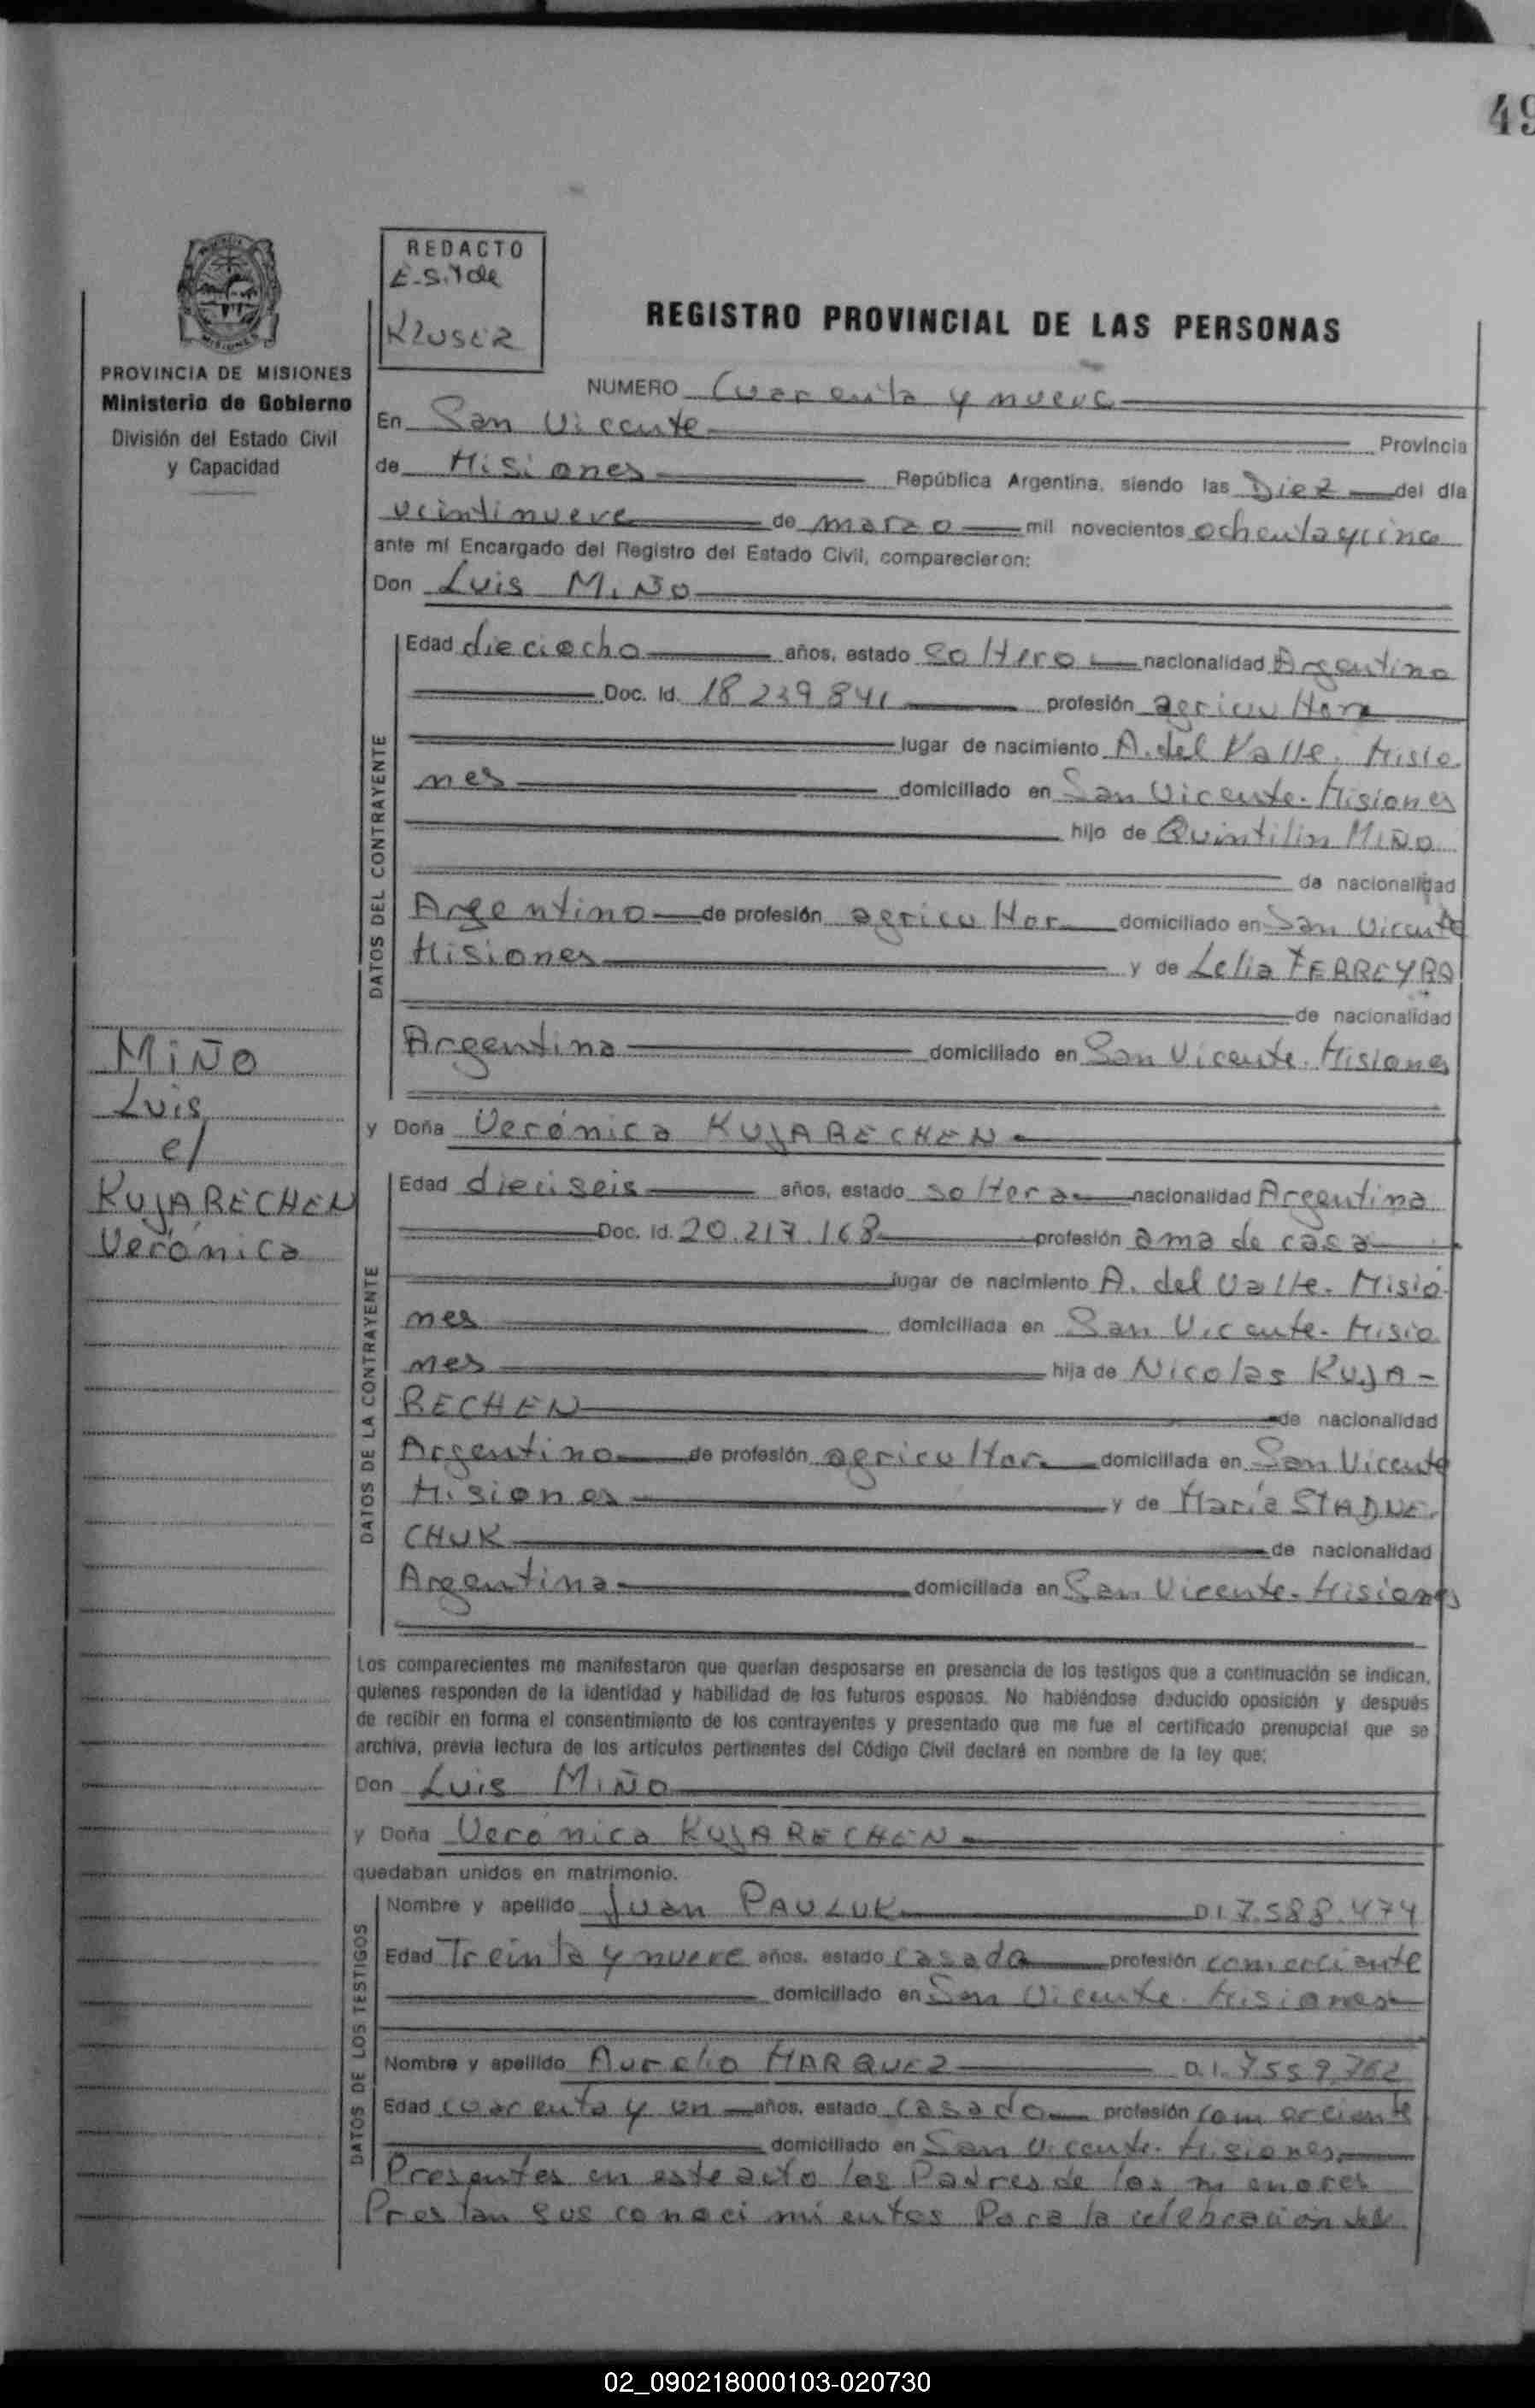 49
REDACTO
E.S. de
KLUSER
REGISTRO PROVINCIAL DE LAS PERSONAS
PROVINCIA DE MISIONES
Ministerio de Gobierno
División del Estado Civil
y Capacidad
NUMERO Cuarenta y nueve
En San Vicente Provincia
de Misiones República Argentina, siendo las Diez del día
veintinueve de marzo mil novecientos ochentaycinco
ante mí Encargado del Registro del Estado Civil, comparecieron:
Don Luis MIÑO
DATOS DEL CONTRAYENTE
Edad dieciocho años, estado soltero nacionalidad Argentino
Doc. Id. 18.239.841 profesión agricultor
lugar de nacimiento A. del Valle. Misio
nes domiciliado en San Vicente. Misiones
hijo de Quintilin MIÑO
de nacionalidad
Argentino de profesión agricultor domiciliado en San Vicente
Misiones y de Lelia FERREYRA
de nacionalidad
Argentina domiciliado en San Vicente. Misiones
MIÑO
Luis
c/
KUJARECHEN
Verónica
y Doña Verónica KUJARECHEN
DATOS DE LA CONTRAYENTE
Edad dieciseis años, estado soltera nacionalidad Argentina
Doc. Id. 20.217.168 profesión ama de casa
lugar de nacimiento A. del Valle. Misio
nes domiciliada en San Vicente. Misio
nes hija de Nicolas KUJA-
RECHEN de nacionalidad
Argentino de profesión agricultor domiciliada en San Vicente
Misiones y de María STADNE-
CHUK de nacionalidad
Argentina domiciliada en San Vicente. Misiones
Los comparecientes me manifestaron que querían desposarse en presencia de los testigos que a continuación se indican,
quienes responden de la identidad y habilidad de los futuros esposos. No habiéndose deducido oposición y después
de recibir en forma el consentimiento de los contrayentes y presentado que me fue el certificado prenupcial que se
archiva, previa lectura de los artículos pertinentes del Código Civil declaré en nombre de la ley que:
Don Luis MIÑO
y Doña Verónica KUJARECHEN
quedaban unidos en matrimonio.
DATOS DE LOS TESTIGOS
Nombre y apellido Juan PAULUK DI 7.588.474
Edad Treinta y nueve años, estado casado profesión comerciante
domiciliado en San Vicente. Misiones
Nombre y apellido Aurelio MARQUEZ D.I. 7559.762
Edad cuarenta y un años, estado casado profesión comerciante
domiciliado en San Vicente. Misiones
Presentes en este acto los Padres de los menores
Prestan sus conocimientos Para la celebración del
02_090218000103-020730